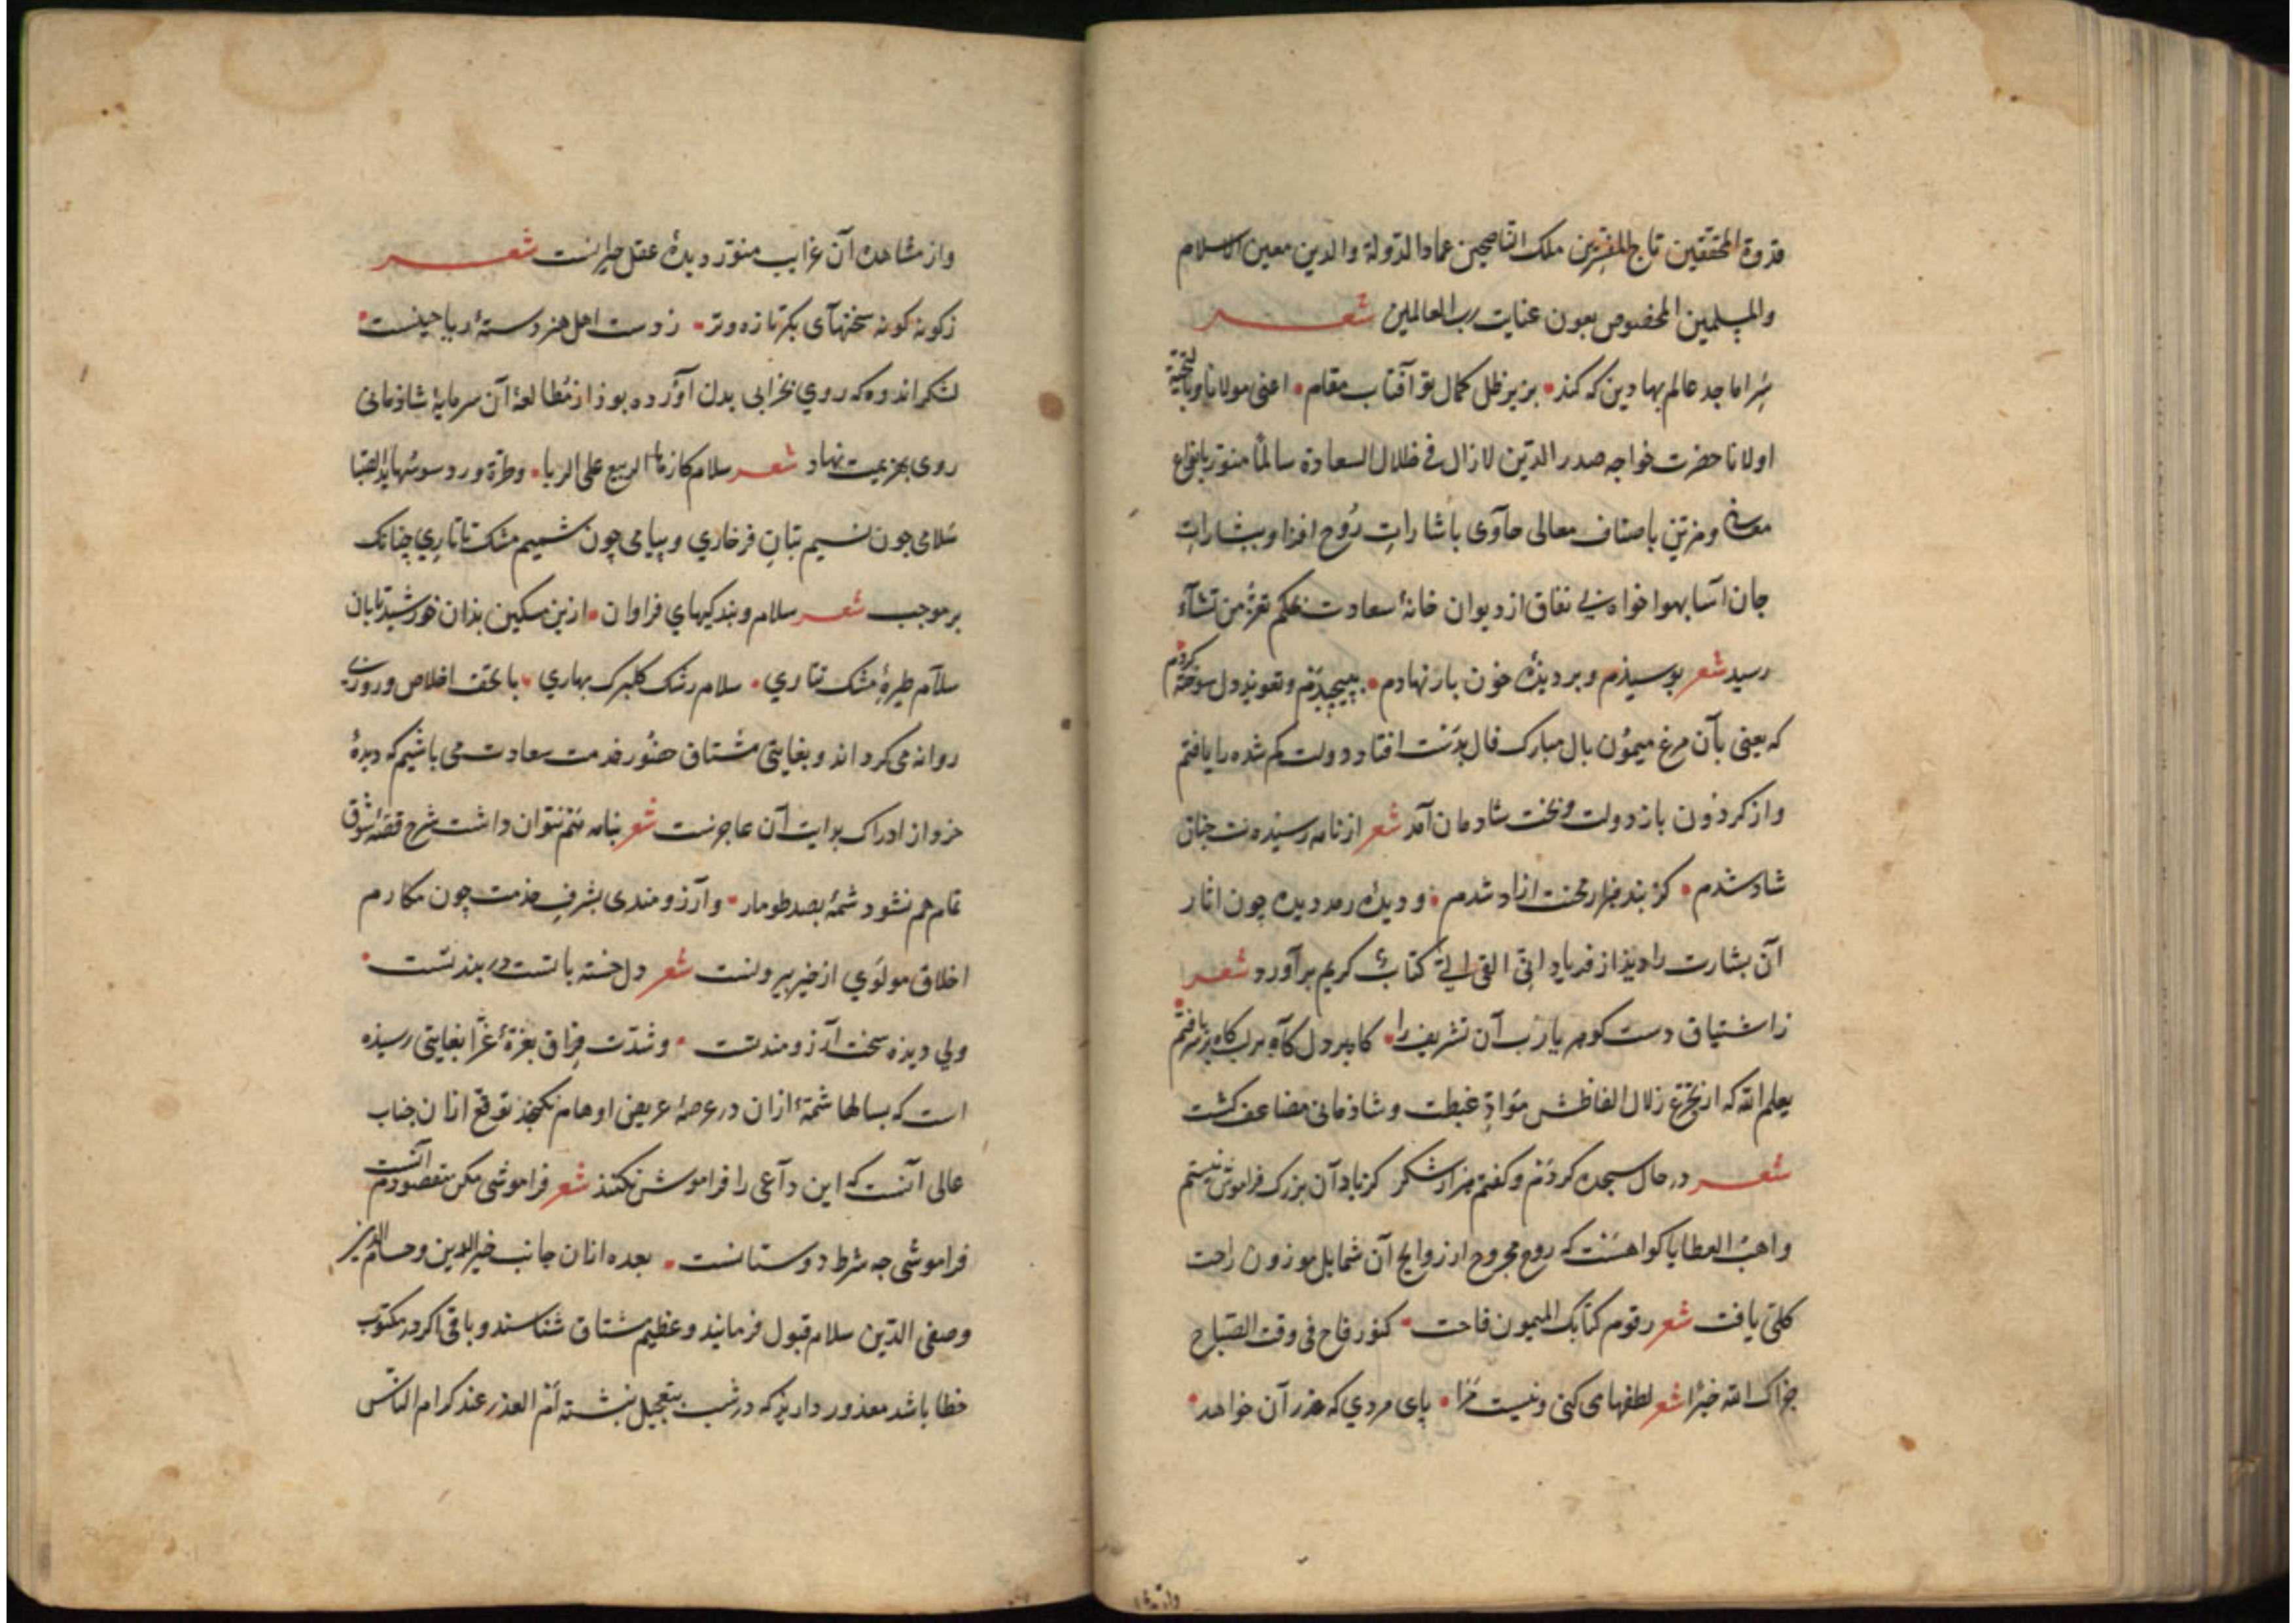 قدوة المحققین تاج المفسرین ملک الناصحین عماد الدولة والدین معین الاسلام
والمسلمین المخصوص بعون عنایت رب العالمین شعر
ماجد عالم بهادین که کند • بزیر ظل کمال تو آفتاب مقام • اعنی مولانا وبالتحیة
اولانا حضرت خواجه صدر الدین لازال فی ظلال السعادة سالمًا منوّر بانواع
معانی ومزیّن باصناف معالی حاوی باشاراتِ رُوح افزا وبشاراتِ
جان آسا بهواخواه بی نفاق از دیوان خانهٔ سعادت بحکم تعزّ من تشآء
رسید شعر بوسیذم وبر دیذهٔ خون بار نهادم • بپیچیدَم وتعویذ دل سوخته کردم
که یعنی بآن مرغ میمؤن بال مبارک فال بدَست افتاد دولت کم شده را یافتم
واز کردُون باز دولت وبخت شادمان آمد شعر از نامه رسیذنت چنان
شاد شدم • کز بند هزار محنت ازاد شدم • ودیدهٔ رمد دیده چون اثار
آن بشارت را دیذ از فریاد انّی القی الیّ کتابٌ کریم برآورد شعر
ز اشتیاق دست کوهر یارب آن تشریف را • کاه بر دل کآه بر کاه بر سر یافتم
یعلم الله که از تجرّع زلال الفاظش موادّ غبطت وشاذمانی مضاعف کشت
شعر در حال سجده کردَم وکفتم هزار شکر کز یاد آن بزرک فراموش نیستم
واهبُ العطایا کواهسَت که روح مجروح از زوایح آن شمایل موزون راحت
کلّی یافت شعر رقوم کتابک المیمون فاحت • کنور فاح فی وقت الصّباح
جزاک الله خیرًا شعر لطفها می کنی ونیست مَرا • پای مردی که عذر آن خواهد •
واز مشاهده آن غرایب منوّر دیدهٔ عقل حیرانست شعر
ز کونه کونه سخنهآی بکر تازه وتر • ز دست اهل هنر دستهٔ ریاحینست •
لشکر اندوه که روی بخرابی بدن آورده بوذ از مُطالعهٔ آن سرمایهٔ شاذمانی
روی بهزیمت نهاد شعر سلام کازهار الربیع علی الربا • وطرّة ورد سوسنها ید الصّبا
سَلامی چون نسیم بتانِ فرخاری وپیامی چون شمیم مشک تاتارِی چنانک
بر موجب شعر سلام وبندکیهای فراوان • ازین مسکین بذان خورشید تابان
سلآم طیرهٔ مشک تتاری • سلام رشک کلبرک بهاری • باتحف اخلاص
روانه می کرداند وبغایتی مشتاق حضُور خدمت سعادت می باشیم که دیدهٔ
خرد از ادراک بدایت آن عاجزست شعر بنامه ختم نتوان داشت شرح قصّهٔ شوق
تمام هم نشود شمهٔ بصد طومار • وآرزومندی بشرفِ خذمت چون مکارم
اخلاق مولوِی از خیز بیرونست شعر دل خسته باتست دربندتست •
ولی دیذه سخت آرزومندتست • وشدّت فِراق بغرّهٔ غرّا بغایتی رسیذه
است که بسالها شمّهٔ ازان در عرصهٔ عریض اوهام نکنجذ توقع ازان جناب
عالی آنست که این دآعی را فراموش نکنند شعر فراموشی مکن مقصودم آنست
فراموشی چه شرط دوستانست • بعده ازان جانب خیر الدین وحسام الدین
وصفی الدّین سلام قبول فرمایند وعظیم مشتاق شناسند وباقی اکر در مکتوب
خطا باشد معذور داریذ که در شب بتعجیل نبشته اَم العذر عند کرام الناس